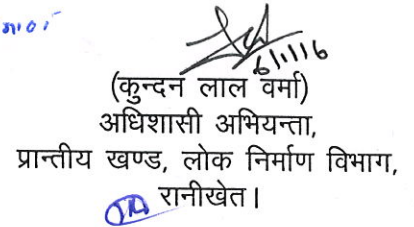 6/1/16
(कुन्दन लाल वर्मा)
अधिशासी अभियन्ता,
प्रान्तीय खण्ड, लोक निर्माण विभाग,
रानीखेत।